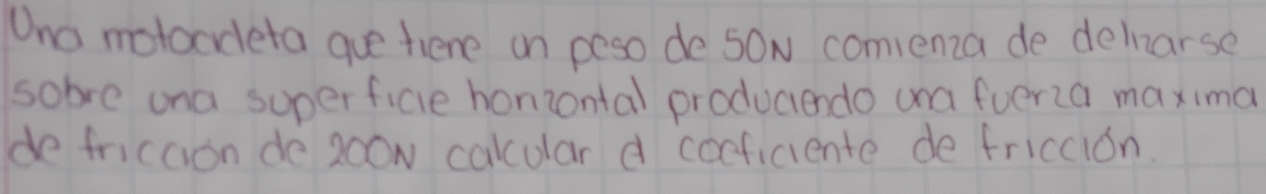 Una motocicleta que tiene un peso de 50N comienza de delizarse
sobre una superficie horizontal produciendo una fuerza maxima
de fricción de 200N calcular el coeficiente de fricción.